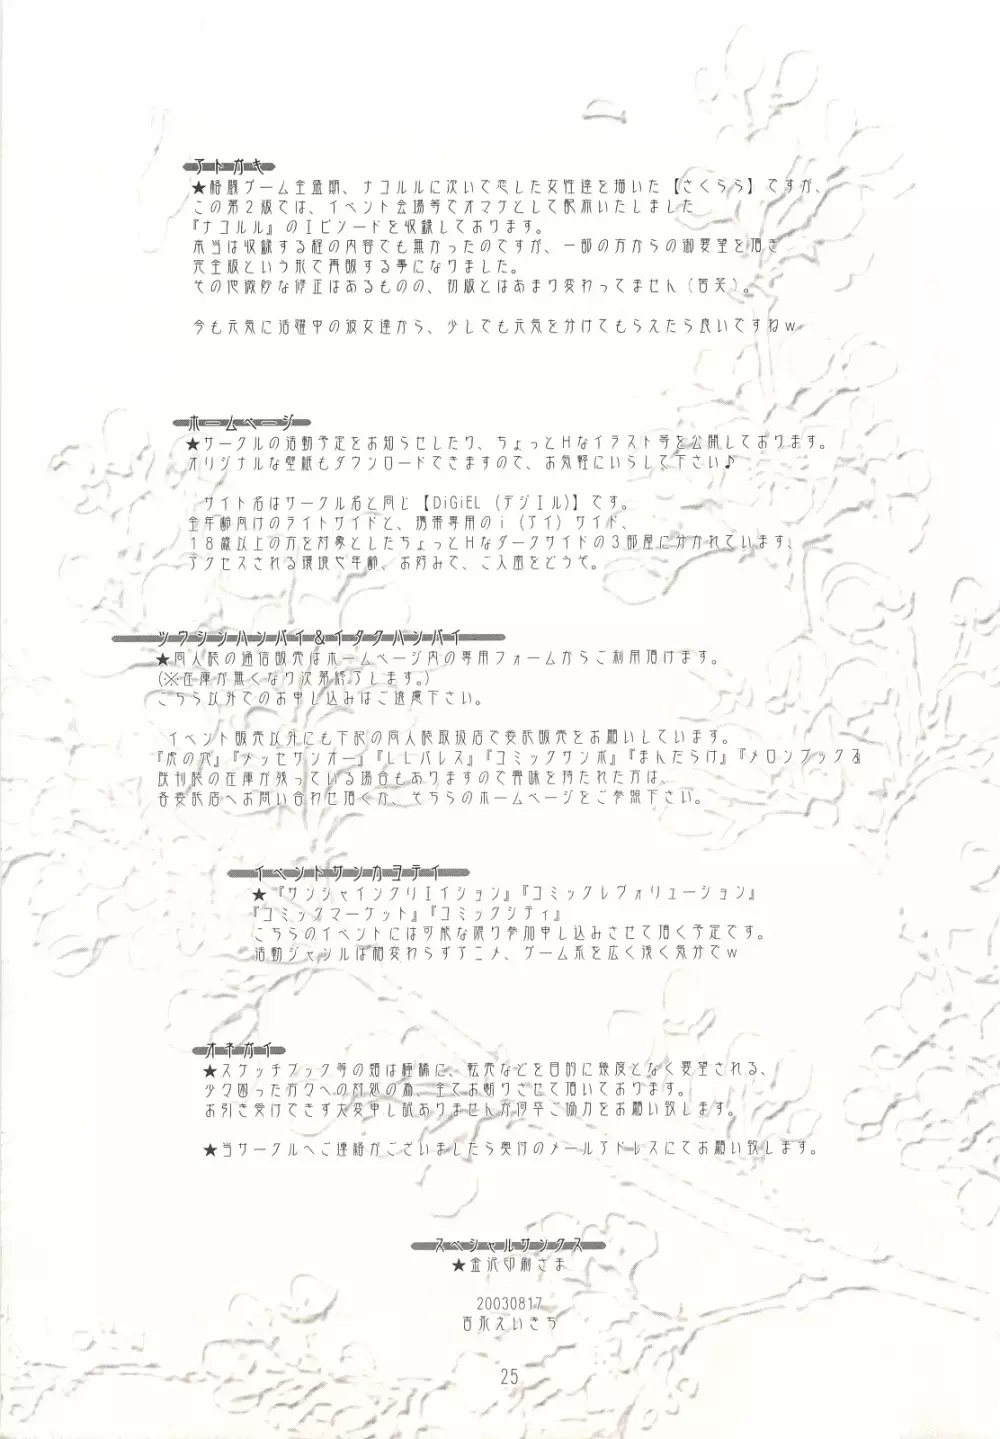 アトガキ
★格闘ゲーム全盛期、ナコルルに次いで恋した女性達を描いた【さくらら】ですが、
この第2版では、イベント会場等でオマケとして配布いたしました
『ナコルル』のエピソードを収録しております。
本当は収録する程の内容でも無かったのですが、一部の方からの御要望を頂き
完全版という形で再販する事になりました。
その他微妙な修正はあるものの、初版とはあまり変わってません(苦笑)。
今も元気に活躍中の彼女達から、少しでも元気を分けてもらえたら良いですねw
ホームページ
★サークルの活動予定をお知らせしたり、ちょっとHなイラスト等を公開しております。
オリジナルな壁紙もダウンロードできますので、お気軽にいらして下さい♪
サイト名はサークル名と同じ【DiGiEL(デジエル)】です。
全年齢向けのライトサイドと、携帯専用のi(アイ)サイド、
18歳以上の方を対象としたちょっとHなダークサイドの3部屋に分かれています、
アクセスされる環境や年齢、お好みで、ご入室をどうぞ。
ツウシンハンバイ&イタクハンバイ
★同人誌の通信販売はホームページ内の専用フォームからご利用頂けます。
(※在庫が無くなり次第終了します。)
こちら以外でのお申し込みはご遠慮下さい。
イベント販売以外にも下記の同人誌取扱店で委託販売をお願いしています。
『虎の穴』『メッセサンオー』『LLパレス』『コミックサンポ』『まんだらけ』『メロンブックス』
既刊誌の在庫が残っている場合もありますので興味を持たれた方は、
各委託店へお問い合わせ頂くか、そちらのホームページをご参照下さい。
イベントサンカヨテイ
★『サンシャインクリエイション』『コミックレヴォリューション』
『コミックマーケット』『コミックシティ』
こちらのイベントには可能な限り参加申し込みさせて頂く予定です。
活動ジャンルは相変わらずアニメ、ゲーム系を広く浅く気分でw
オネガイ
★スケッチブック等の類は極端に、転売などを目的に幾度となく要望される、
少々困った方々への対処の為、全てお断りさせて頂いております。
お引き受けできず大変申し訳ありませんが何卒ご協力をお願い致します。
★当サークルへご連絡がございましたら奥付のメールアドレスにてお願い致します。
スペシャルサンクス
★金沢印刷さま
20030817
吉永えいきち
25